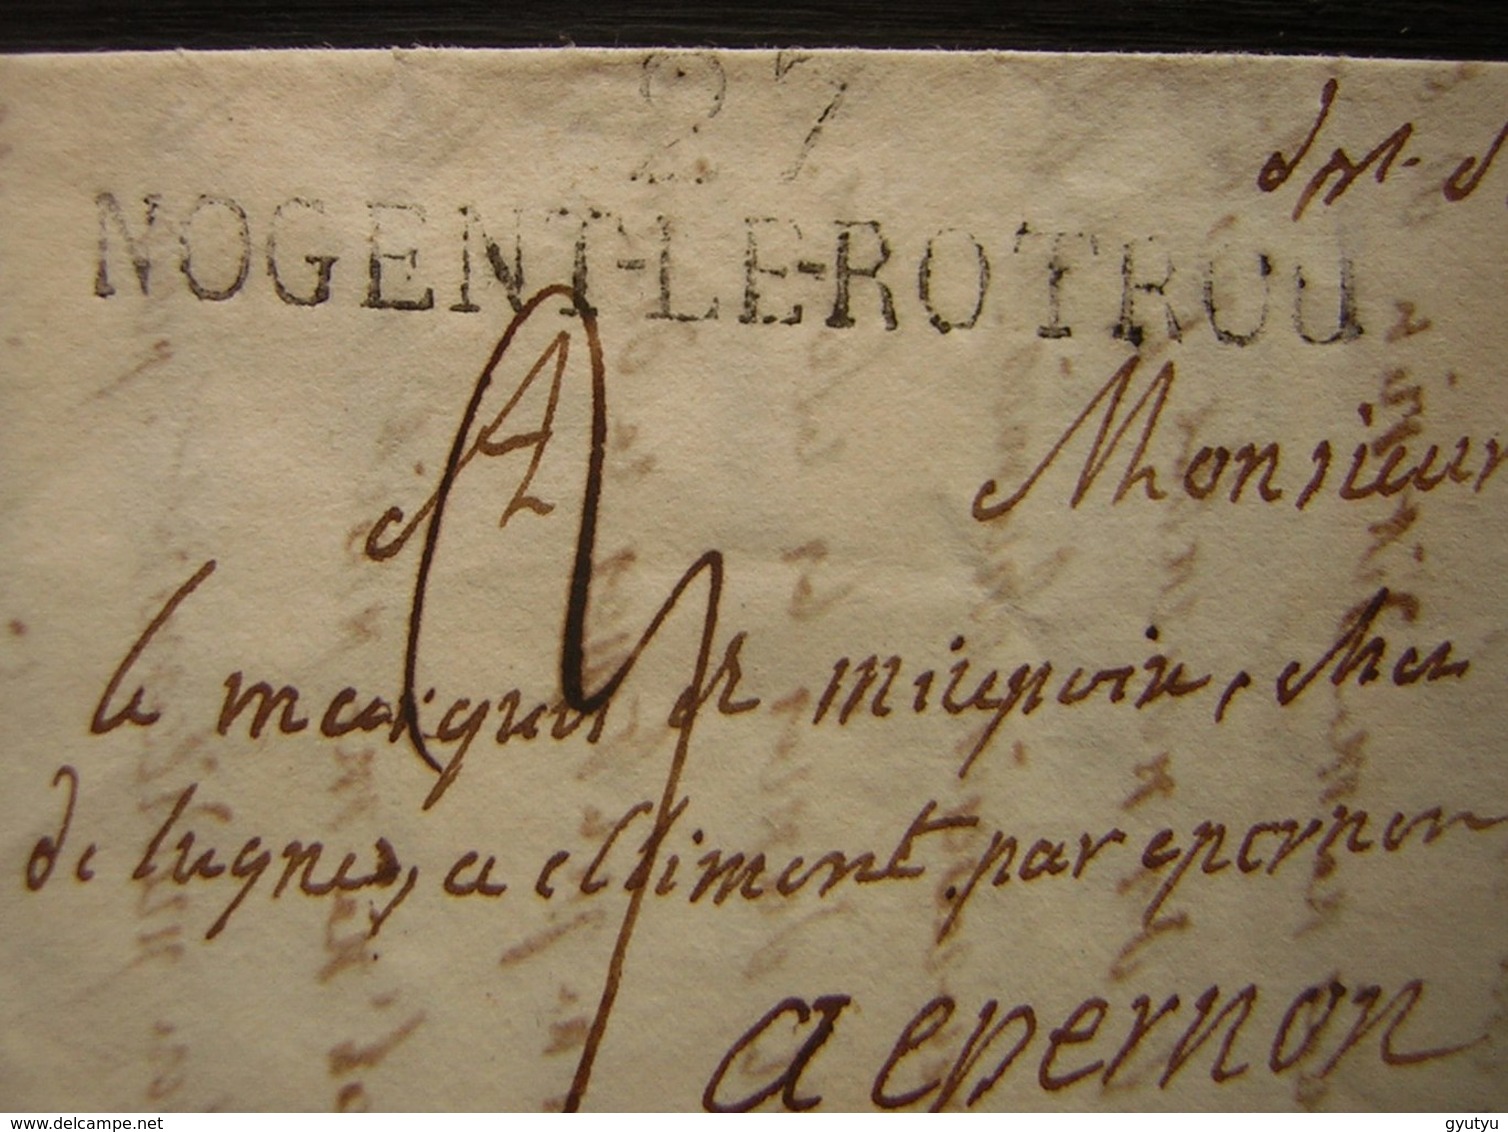 27
NOGENT-LE-ROTROU
A Monsieur
le marquis de mirepoix, chez
de lugnes, a climont par epernon
a epernon
www.delcampe.net
gyutyu